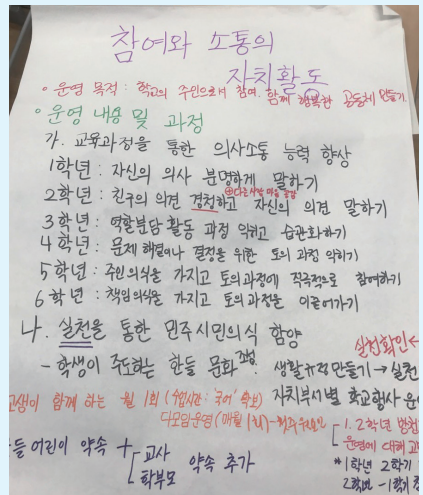 참여와 소통의
자치활동
• 운영 목적 : 학교의 주인으로서 참여. 함께 행복한 공동체 만들기.
• 운영 내용 및 과정
가. 교육과정을 통한 의사소통 능력 향상
1학년 : 자신의 의사 분명하게 말하기
⊕다른사람 마음 공감
2학년 : 친구의 의견 경청하고 자신의 의견 말하기
3학년 : 역할분담 활동 과정 익히고 습관화하기
4학년 : 문제 해결이나 결정을 위한 토의 과정 익히기
5학년 : 주인의식을 가지고 토의과정에 적극적으로 참여하기
6학년 : 책임의식을 가지고 토의과정을 이끌어가기
나. 실천을 통한 민주시민의식 함양
실천확인←
- 학생이 주도하는 한들 문화 생활규정만들기 → 실천
고생이 함께 하는 -월 1회 (수업시간: '국어' 확보) 자치부서별 학교행사 운
다모임운영 (매월 1회)
1.2학년
운영에 대해
들 어린이 약속 + 교사 약속 추가
학부모
* 1학년 2학기
2학년 - 1학기